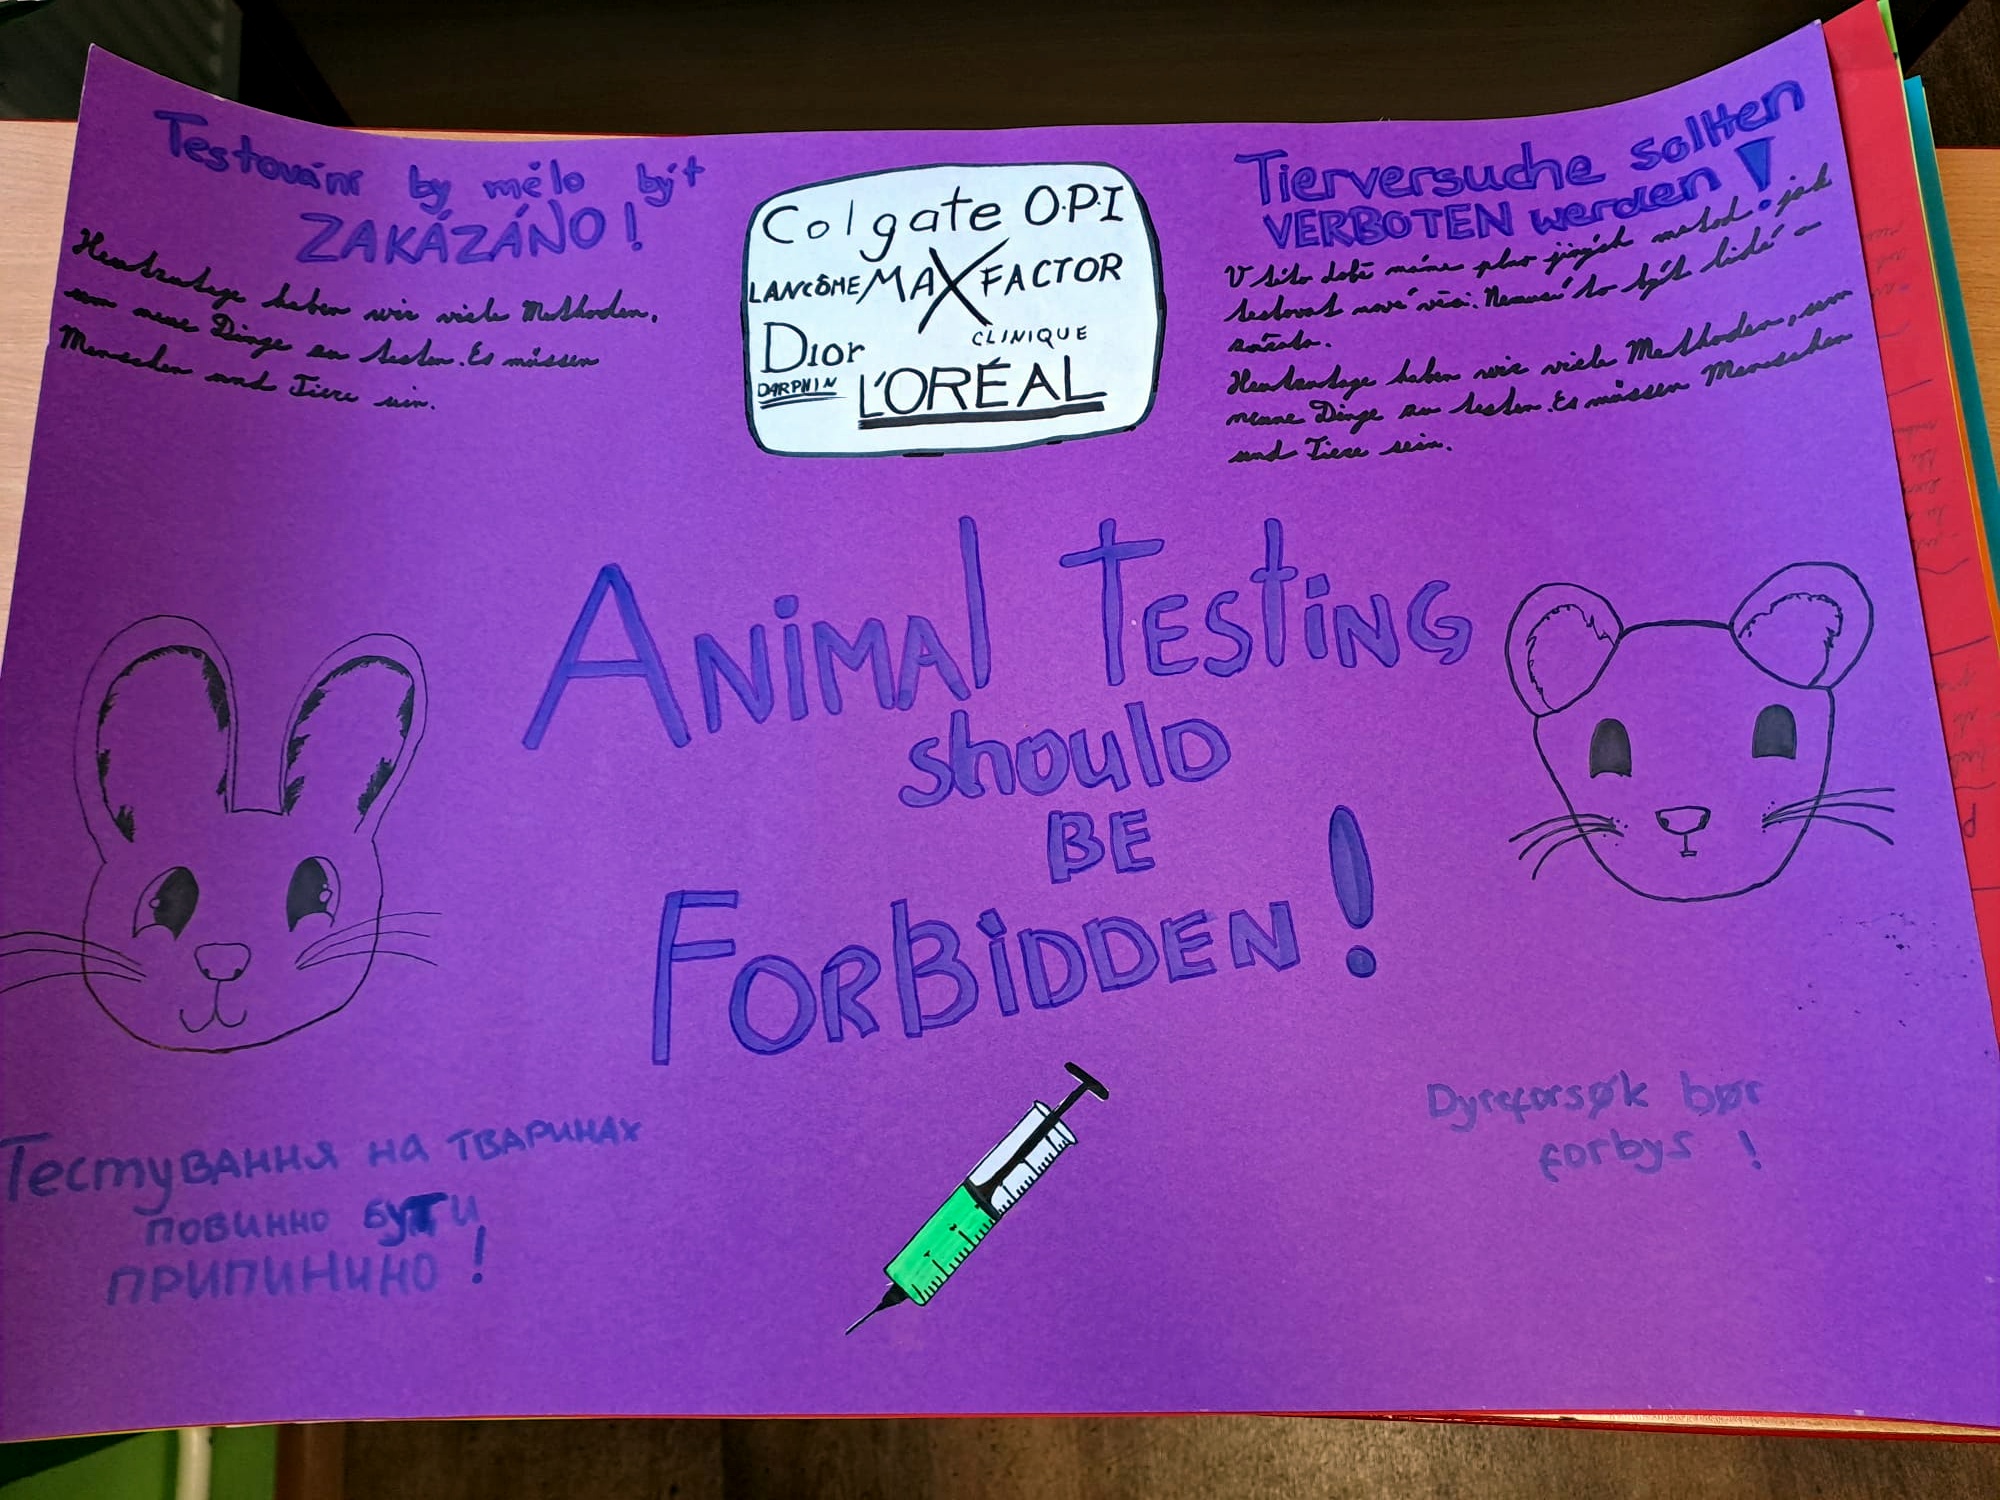 Testování by mělo být
ZAKÁZÁNO!
Heutzutage haben wir viele Methoden,
um neue Dinge zu testen. Es müssen
Menschen und Tiere sein.
Colgate O.P.I
LANCÔME MAX FACTOR
Dior CLINIQUE
DARPHIN L'ORÉAL
Tierversuche sollten
VERBOTEN werden!
V této době máme plno jiných metod jak
testovat nové věci. Nemusí to být lidé a
zvířata.
Heutzutage haben wir viele Methoden, um
neune Dinge zu testen. Es müssen Menschen
und Tiere sein.
ANiMAl TESTiNG
should
BE
FORBiDDEN!
Тестування на тваринах
повинно бути
припинино!
Dyreforsøk bør
forbys !